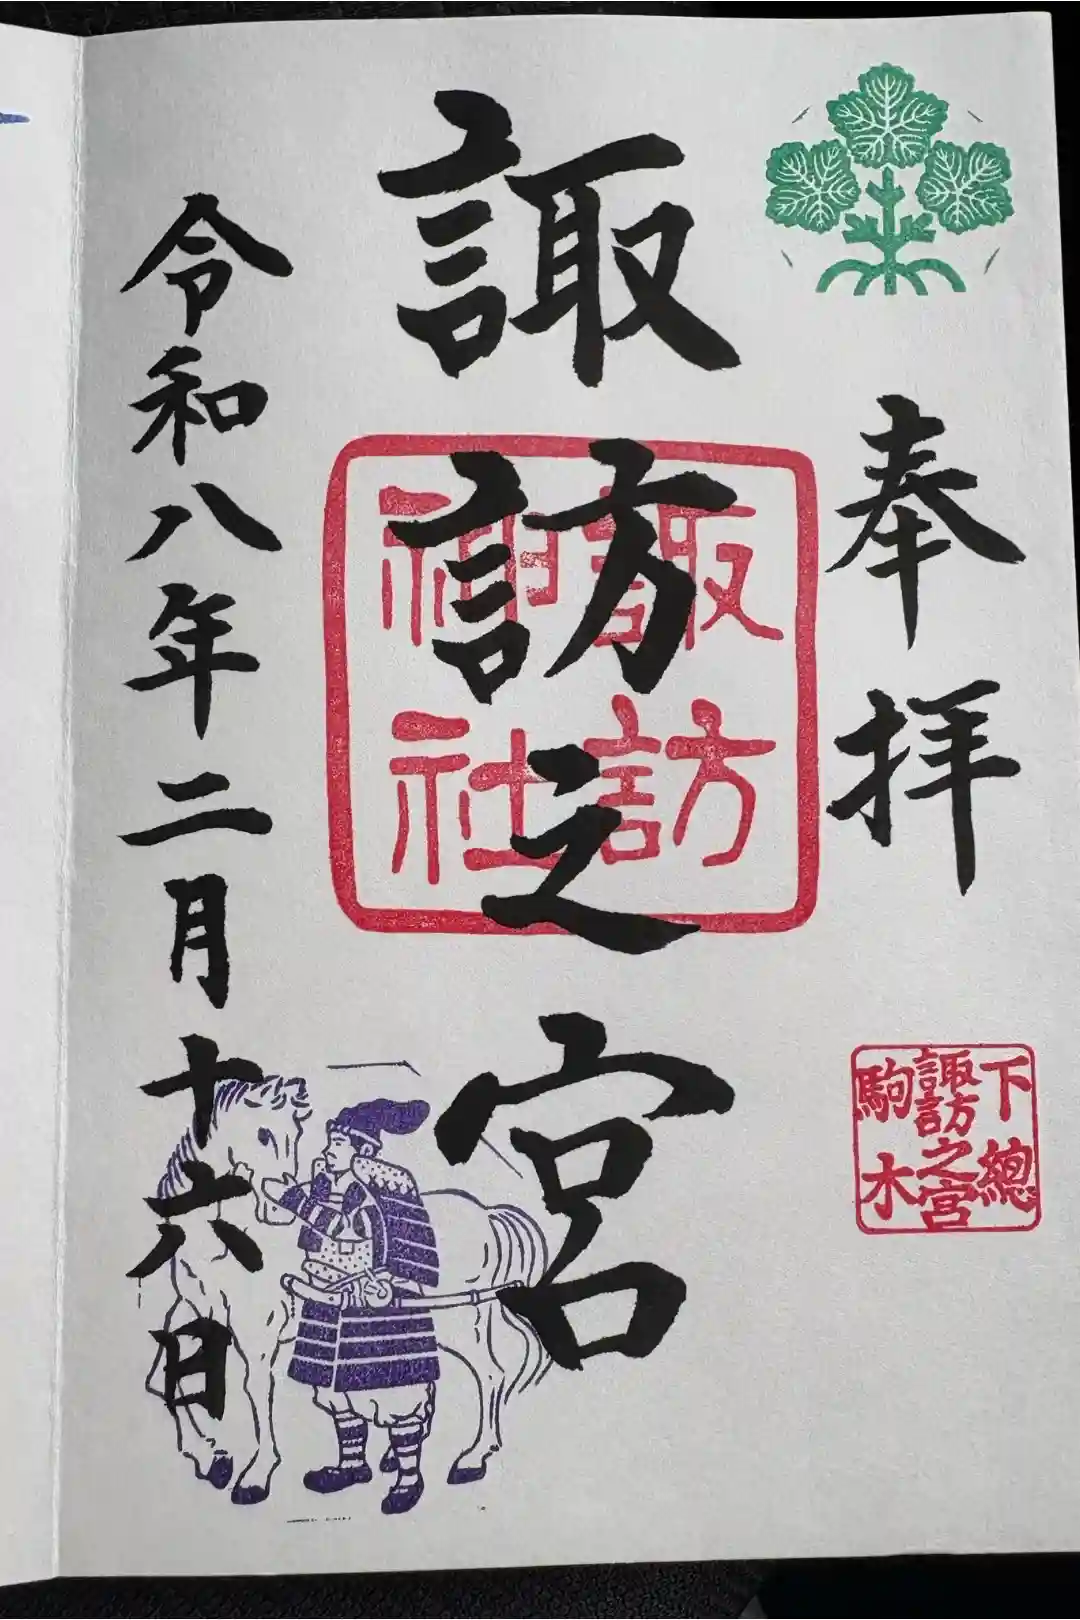 奉拝
下總
諏訪之宮
駒木
諏訪之宮
諏訪
神社
令和八年二月十六日